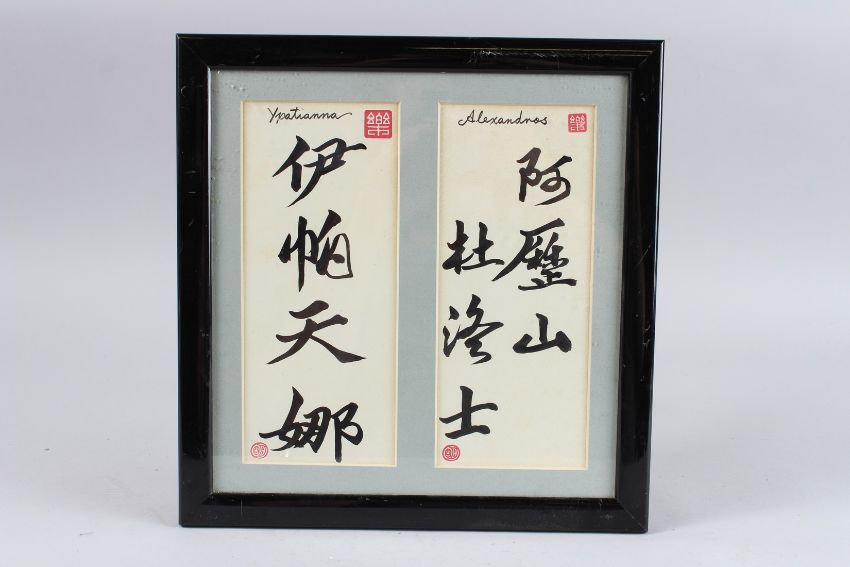 Ypatianna
樂
伊帕天娜
Alexandros
樂
阿歷山
杜洛士